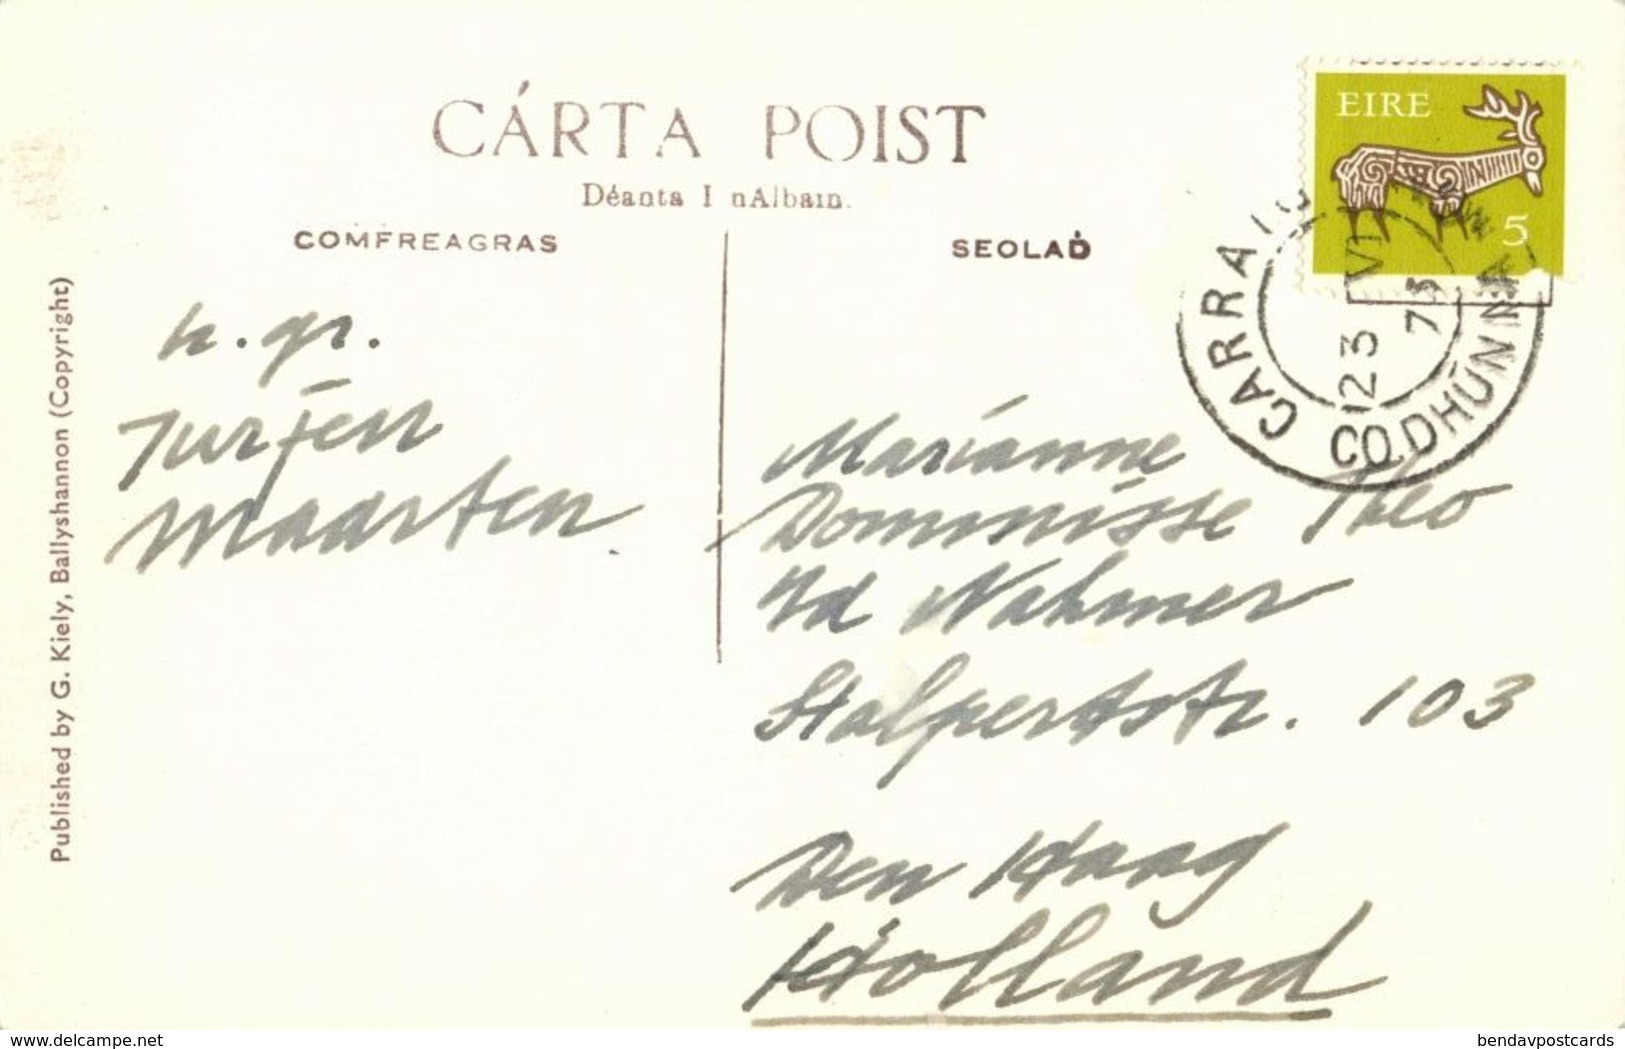 CÁRTA POIST
Déanta I nAlbain.
COMFREAGRAS
SEOLAḊ
EIRE
5
CARRAIG
CO. DHÚN NA
23 VI
73
Published by G. Kiely, Ballyshannon (Copyright)
h. gr.
Jurjen
Maarten.
Marianne
Dominisse Theo
vd Nahmer
Stalpertstr. 103
Den Haag
Holland
www.delcampe.net
bendavpostcards